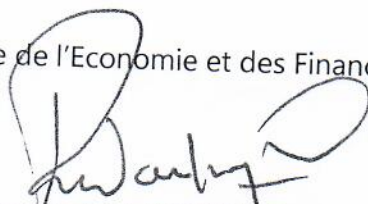 e de l'Economie et des Financ